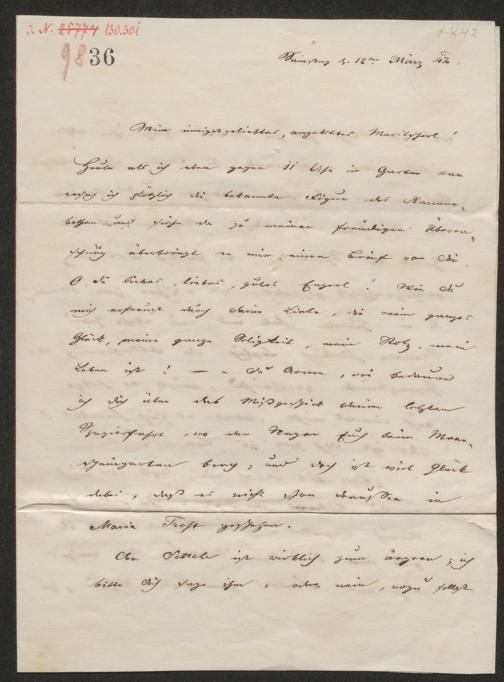 J. N. 25774 130.301
98
36
1842
Samstag d. 12ten März 42.
Mein innigstgeliebtes, angebetetes Maritscherl!
Heute als ich eben gegen 11 Uhr im Garten war
ersah ich plötzlich die bekannte Figur des
bothen und siehe da zu meiner freudigen Überra-
schung überbringt er mir einen Brief von dir.
O du liebes, liebes, gutes Engerl! Wie du
mich erfreust durch deine Liebe, die mein ganzes
Glück, meine ganze Seligkeit, mein Stolz, mein
Leben ist! — — Du Arme, wie bedaure
ich dich über das Mißgeschick deiner letzten
Spazierfahrt, wo der Wagen Euch beim
brach, und doch ist viel Glück
dabei, daß es nicht schon draußen in
Maria Trost geschehen.
Der Settele ist wirklich zum ärgern; ich
bitte dich sage ihm, oder nein, wozu sollst